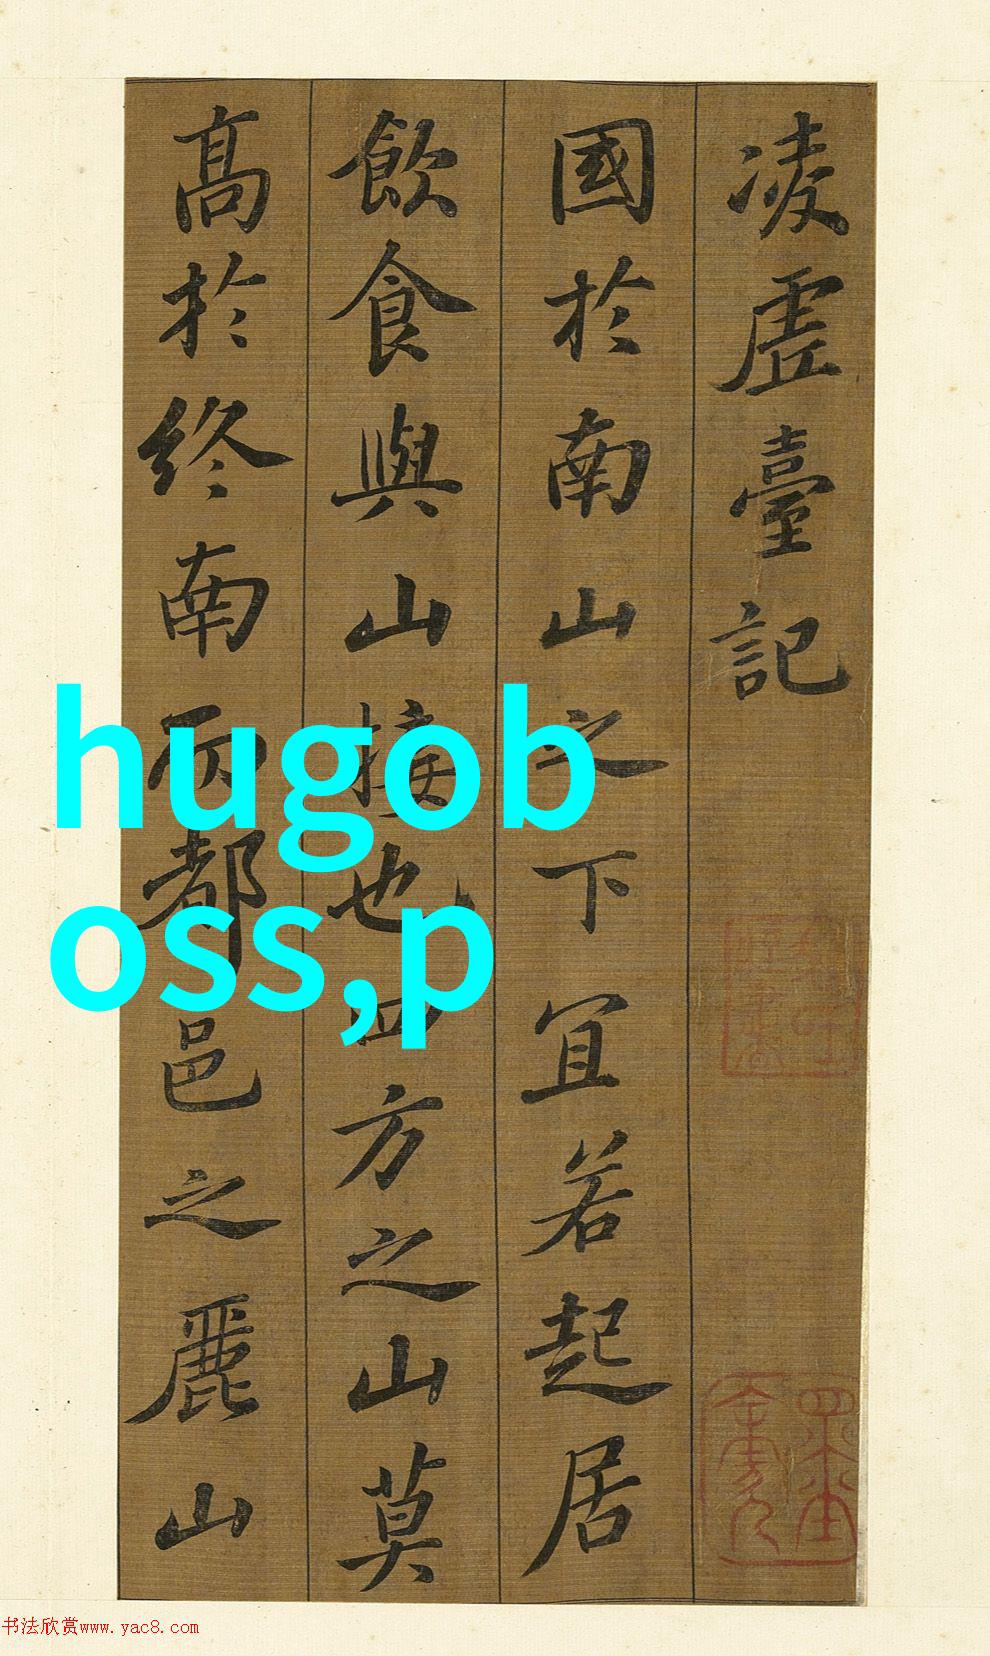 凌虛臺記
國於南山之下宜若起居
飲食與山接也四方之山莫
高於終南而都邑之麗山
hugob
oss,p
书法欣赏www.yac8.com